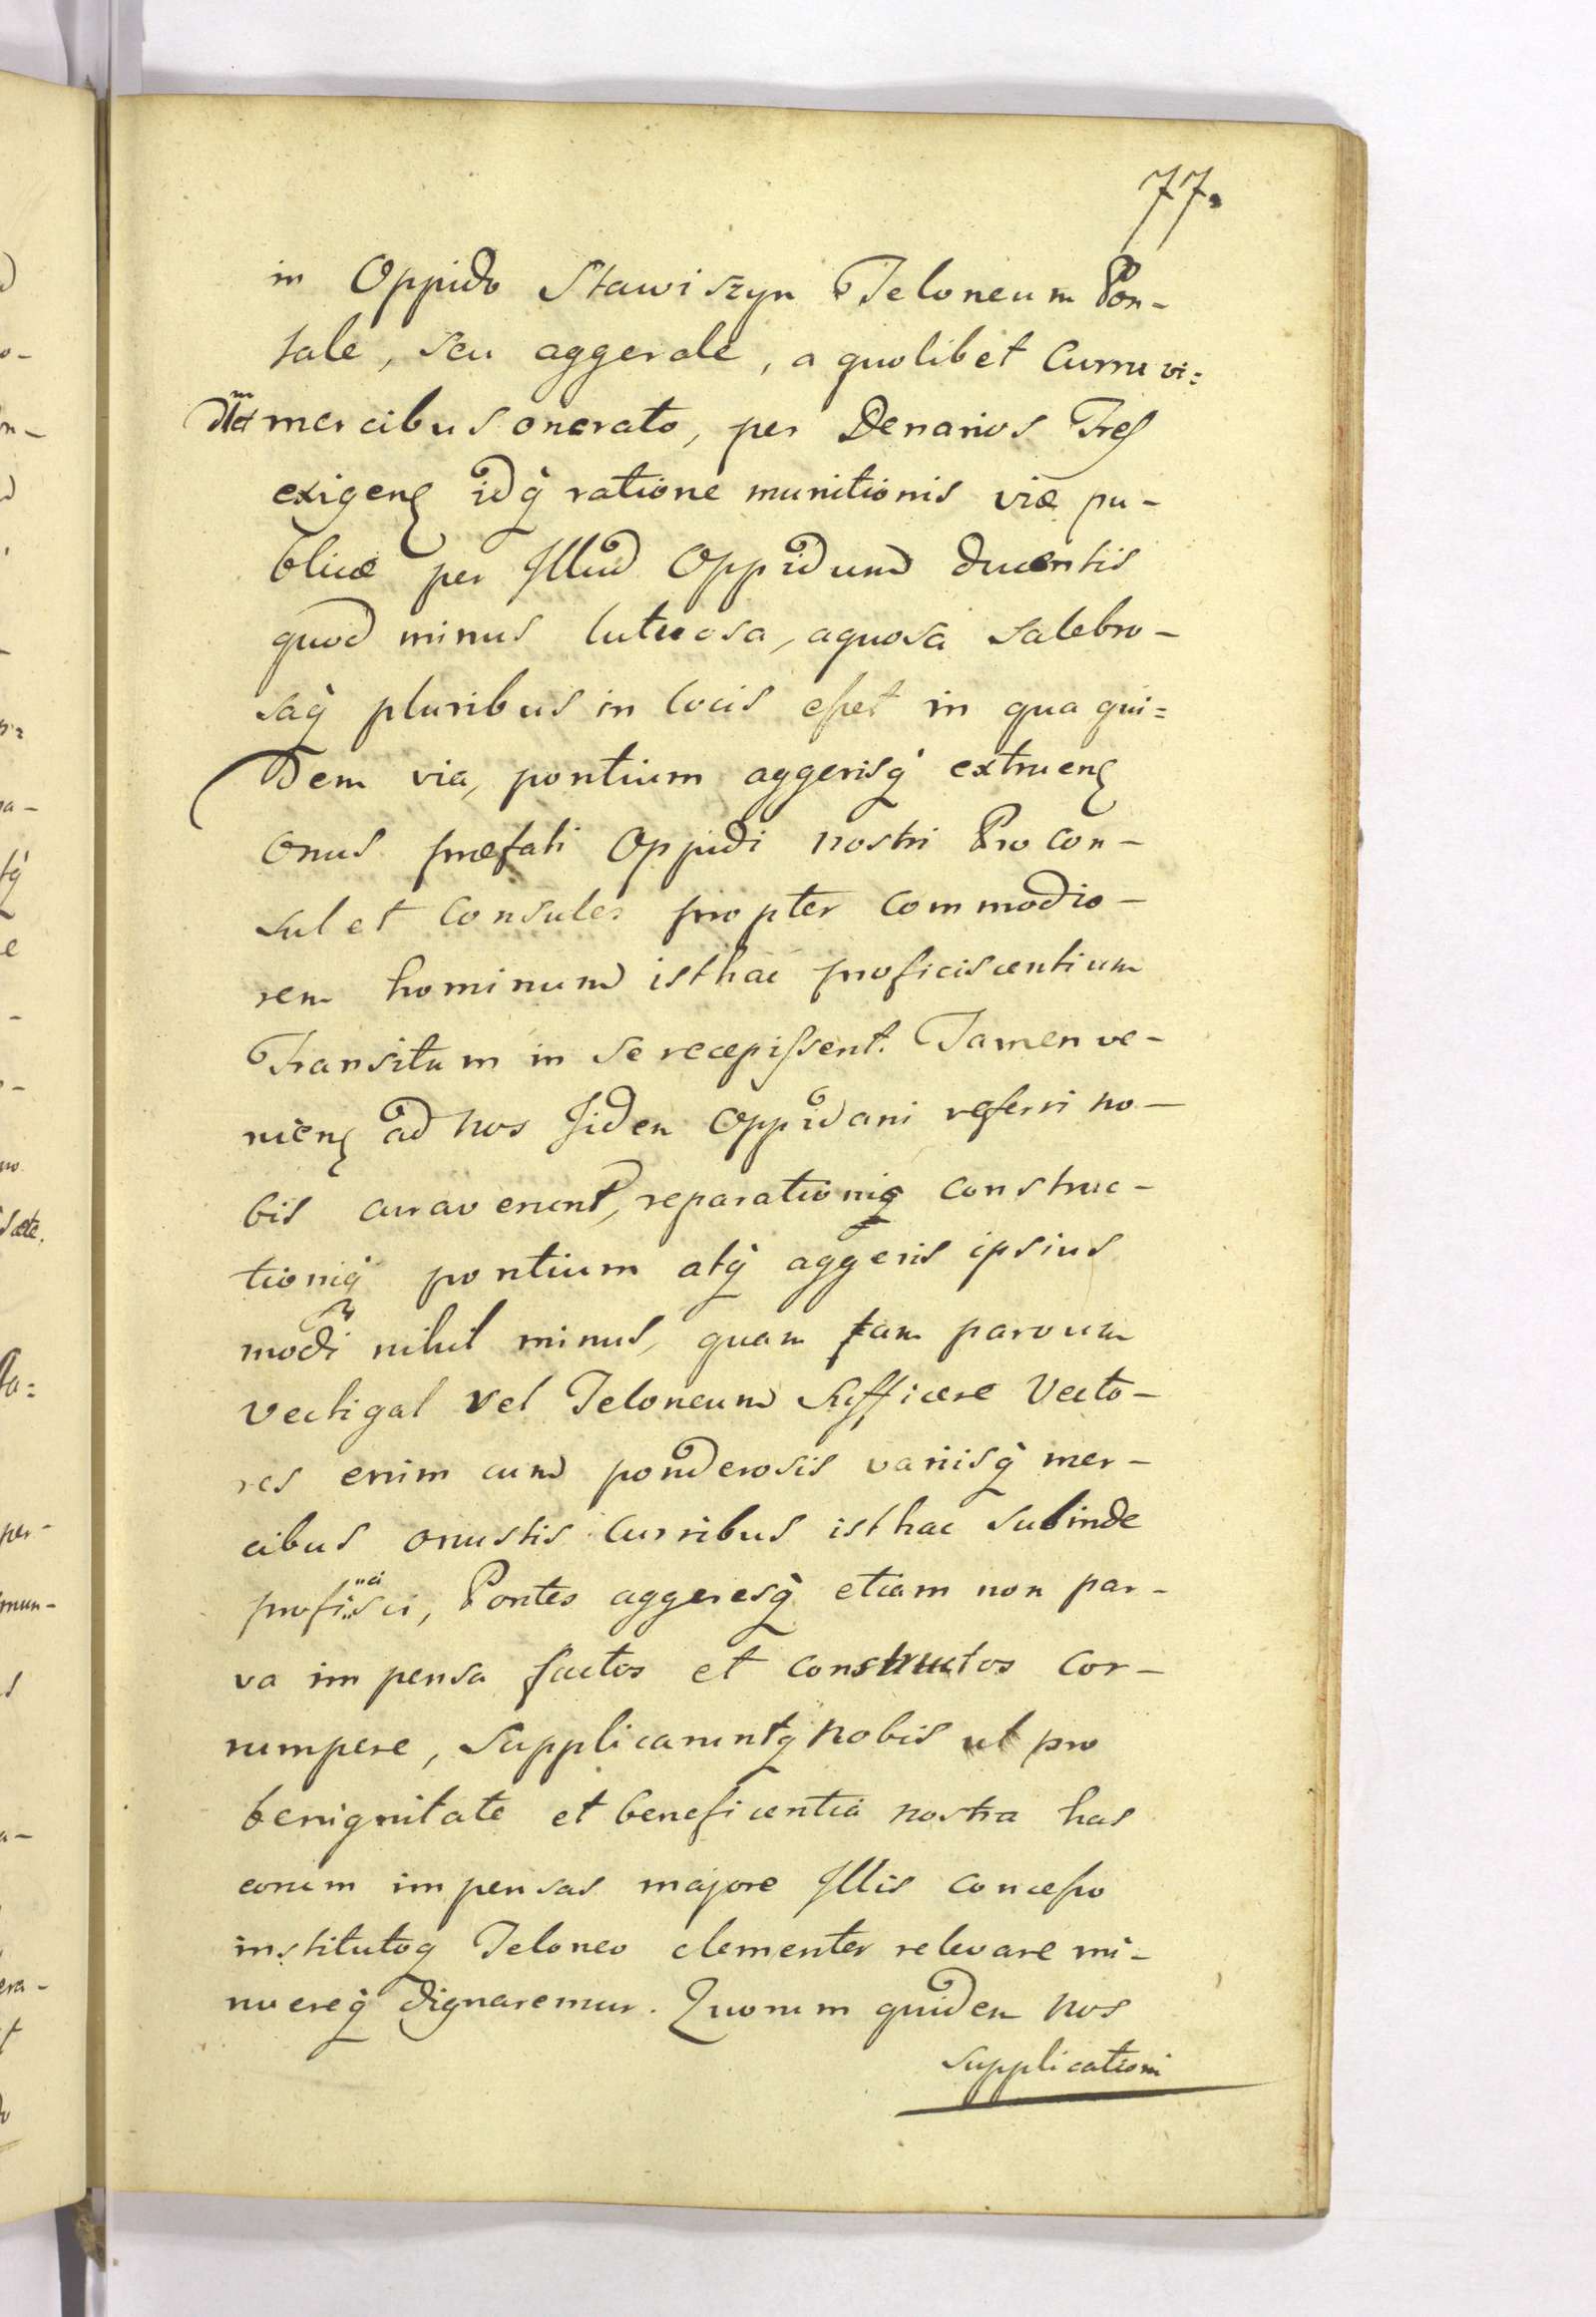 77.
in Oppido Stawiszyn Teloneum Pon-
tale, seu aggerale, a quolibet Curru vi=
mercibus onerato, per Denarios Tres
exigen idq ratione munitionis viæ pu-
blicæ per Illud Oppidum ducentis
quod minus lutuosa, aquosa salebro-
saq pluribus in locis esset in qua qui=
dem via, pontium aggerisq extruen
onus præfati Oppidi nostri Procon-
sul et Consules propter commodio-
rem hominum isthac proficiscentium
Transitum in se recepissent. Tamen ve-
nien ad nos Iidem Oppidani referri no-
bis curaverunt, reparationiq construc-
tioniq pontium atq aggeris ipsius
modi nihil minus, quam tam parvum
Vectigal vel Teloneum sufficere Vecto-
res enim cum ponderosis variisq mer-
cibus onustis Curribus isthac subinde
profisci, Pontes aggeresq etiam non par-
va impensa factos et constructos cor-
rumpere, Supplicaruntq nobis ut pro
benignitate et beneficentia nostra has
eorum impensas majore Illis concesso
institutoq Teloneo clementer relevare mi-
nuereq dignaremur. Quorum quidem nos
supplicationi